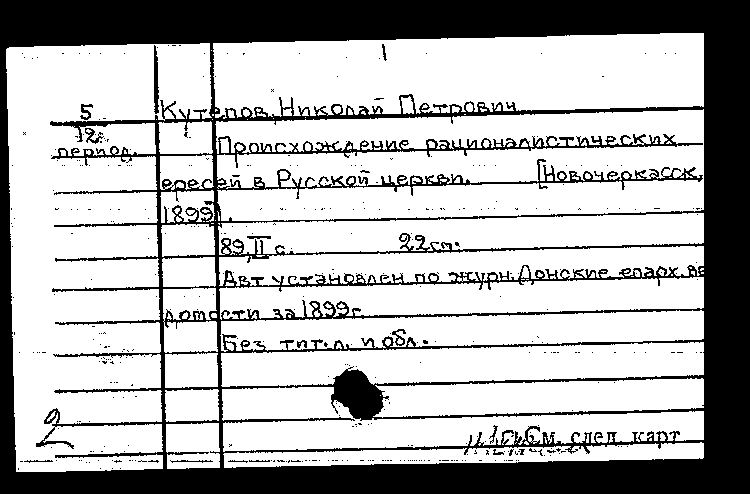 5 Кутепов, Николай Петрович
12г.
период. Происхождение рационалистических
ересей в Русской церкви. [Новочеркасск,
1899].
89, II с. 22 см.
Авт установлен по журн. Донские епарх. ве
домости за 1899г
Без тит. л. и обл.
2
См. след. карт